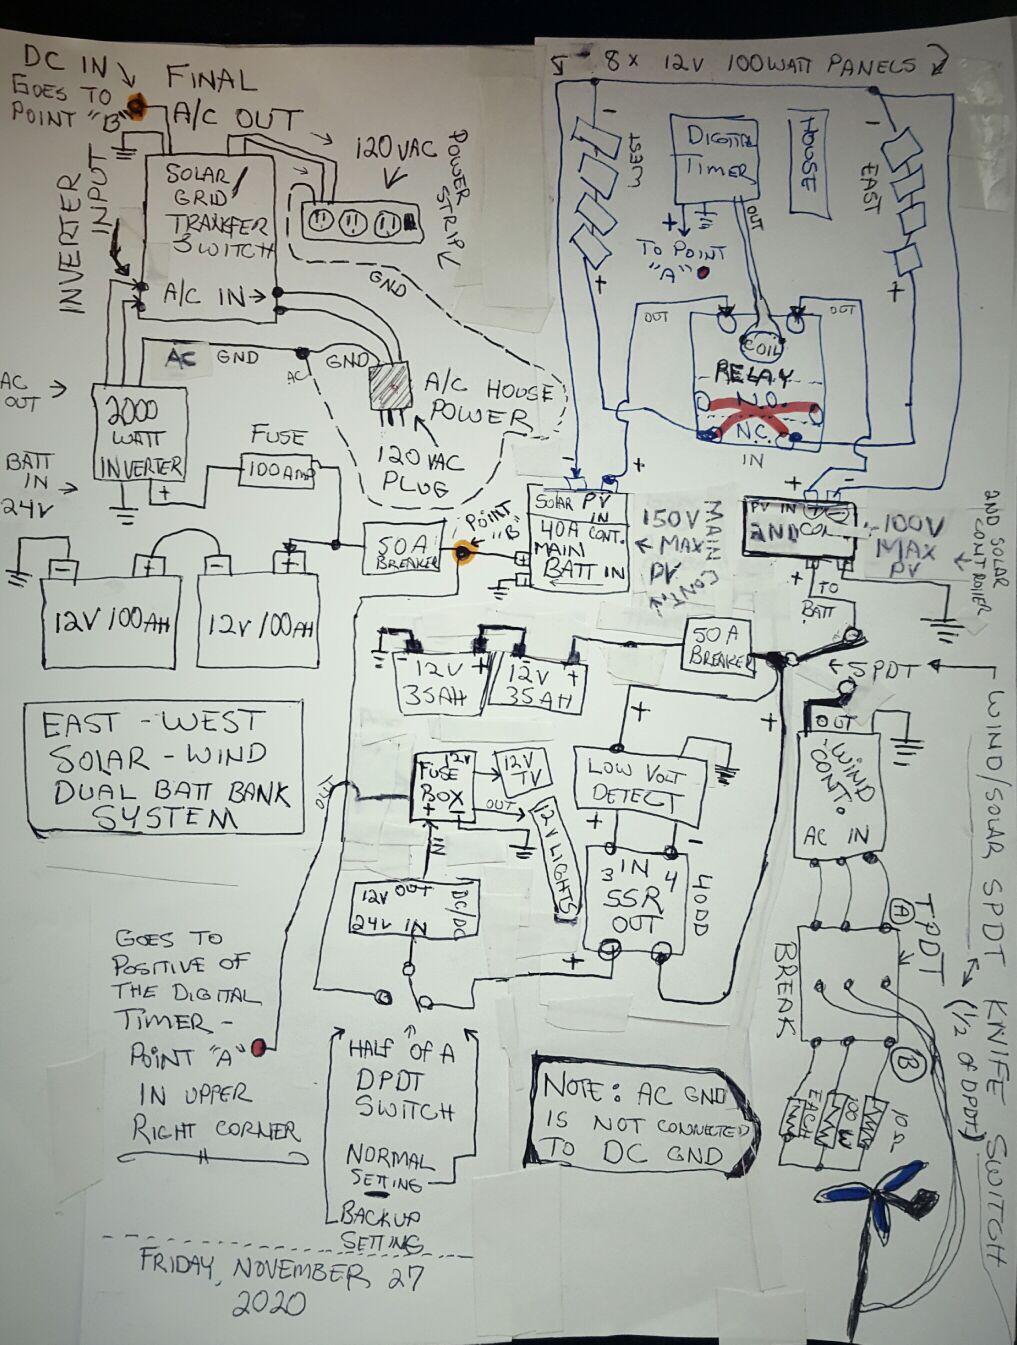 DC IN
GOES TO
POINT "B"
FINAL
A/C OUT
120 VAC
POWER
STRIP
INVERTER
INPUT
SOLAR/
GRID
TRANSFER
SWITCH
A/C IN
GND
AC GND
GND
AC
A/C HOUSE
POWER
120 VAC
PLUG
AC
OUT
2000
WATT
INVERTER
BATT
IN
24V
+
FUSE
100 AMP
50A
BREAKER
POINT
"B"
- +
- +
12V/100AH
12V/100AH
8 x 12V 100WATT PANELS
-
WEST
+
DIGITAL
TIMER
OUT
+
TO POINT
"A"
HOUSE
-
EAST
+
OUT
OUT
COIL
RELAY
N.O.
N.C.
IN
- +
SOLAR PV
IN
40A CONT.
MAIN
BATT IN
+
-
150V
MAX
PV
MAIN CONT.
+ -
PV IN
2ND
100V
MAX
PV
2ND SOLAR
CONTROLLER
+
TO
BATT
SPDT
WIND/SOLAR SPDT KNIFE SWITCH
(1/2 OF DPDT)
50A
BREAKER
- + - +
12V
35AH
12V
35AH
+
+
EAST - WEST
SOLAR - WIND
DUAL BATT BANK
SYSTEM
12V
FUSE
BOX
+ -
12V
TV
OUT
12V LIGHTS
IN
LOW VOLT
DETECT
+ -
IN
3 4
SSR
OUT
+
40DD
OUT
WIND
CONT.
AC IN
12V OUT
24V IN
DC/DC
A
TPDT
BREAK
B
100W
EACH
10Ω
GOES TO
POSITIVE OF
THE DIGITAL
TIMER -
POINT "A"
IN UPPER
RIGHT CORNER
HALF OF A
DPDT
SWITCH
NORMAL
SETTING
BACKUP
SETTING
NOTE: AC GND
IS NOT CONNECTED
TO DC GND
FRIDAY, NOVEMBER 27
2020